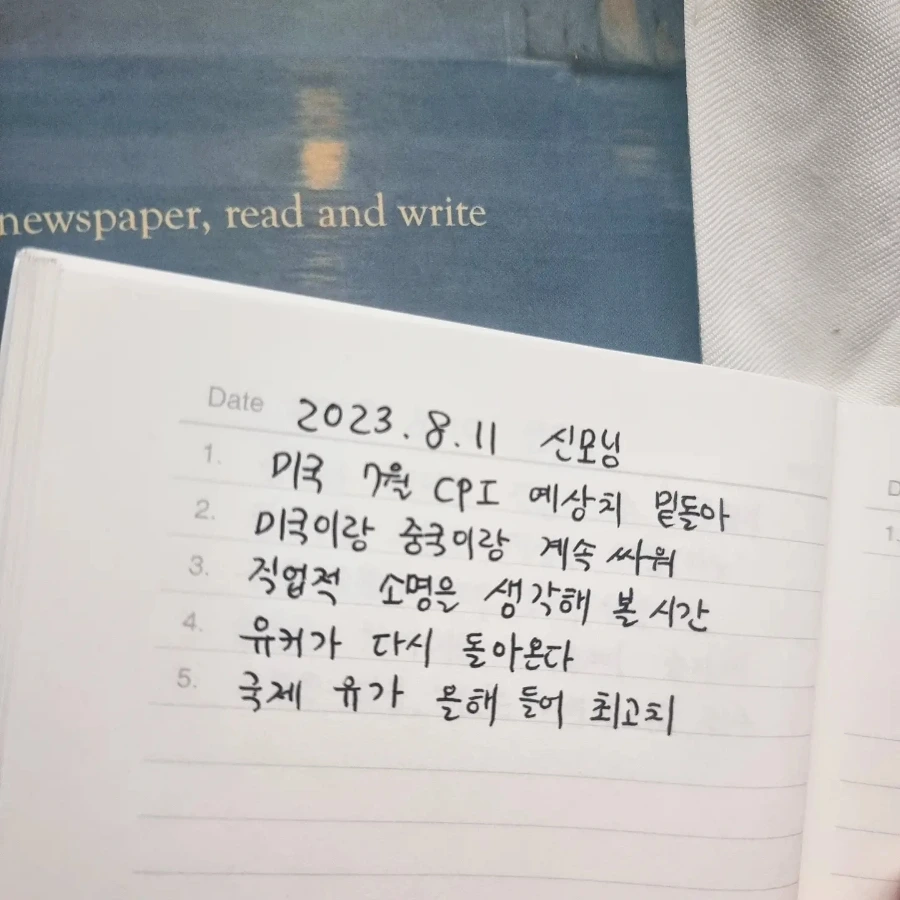 newspaper, read and write
Date 2023. 8. 11 신모닝
1. 미국 7월 CPI 예상치 밑돌아
2. 미국이랑 중국이랑 계속 싸워
3. 직업적 소명을 생각해 볼 시간
4. 유커가 다시 돌아온다
5. 국제 유가 올해 들어 최고치
D
1.